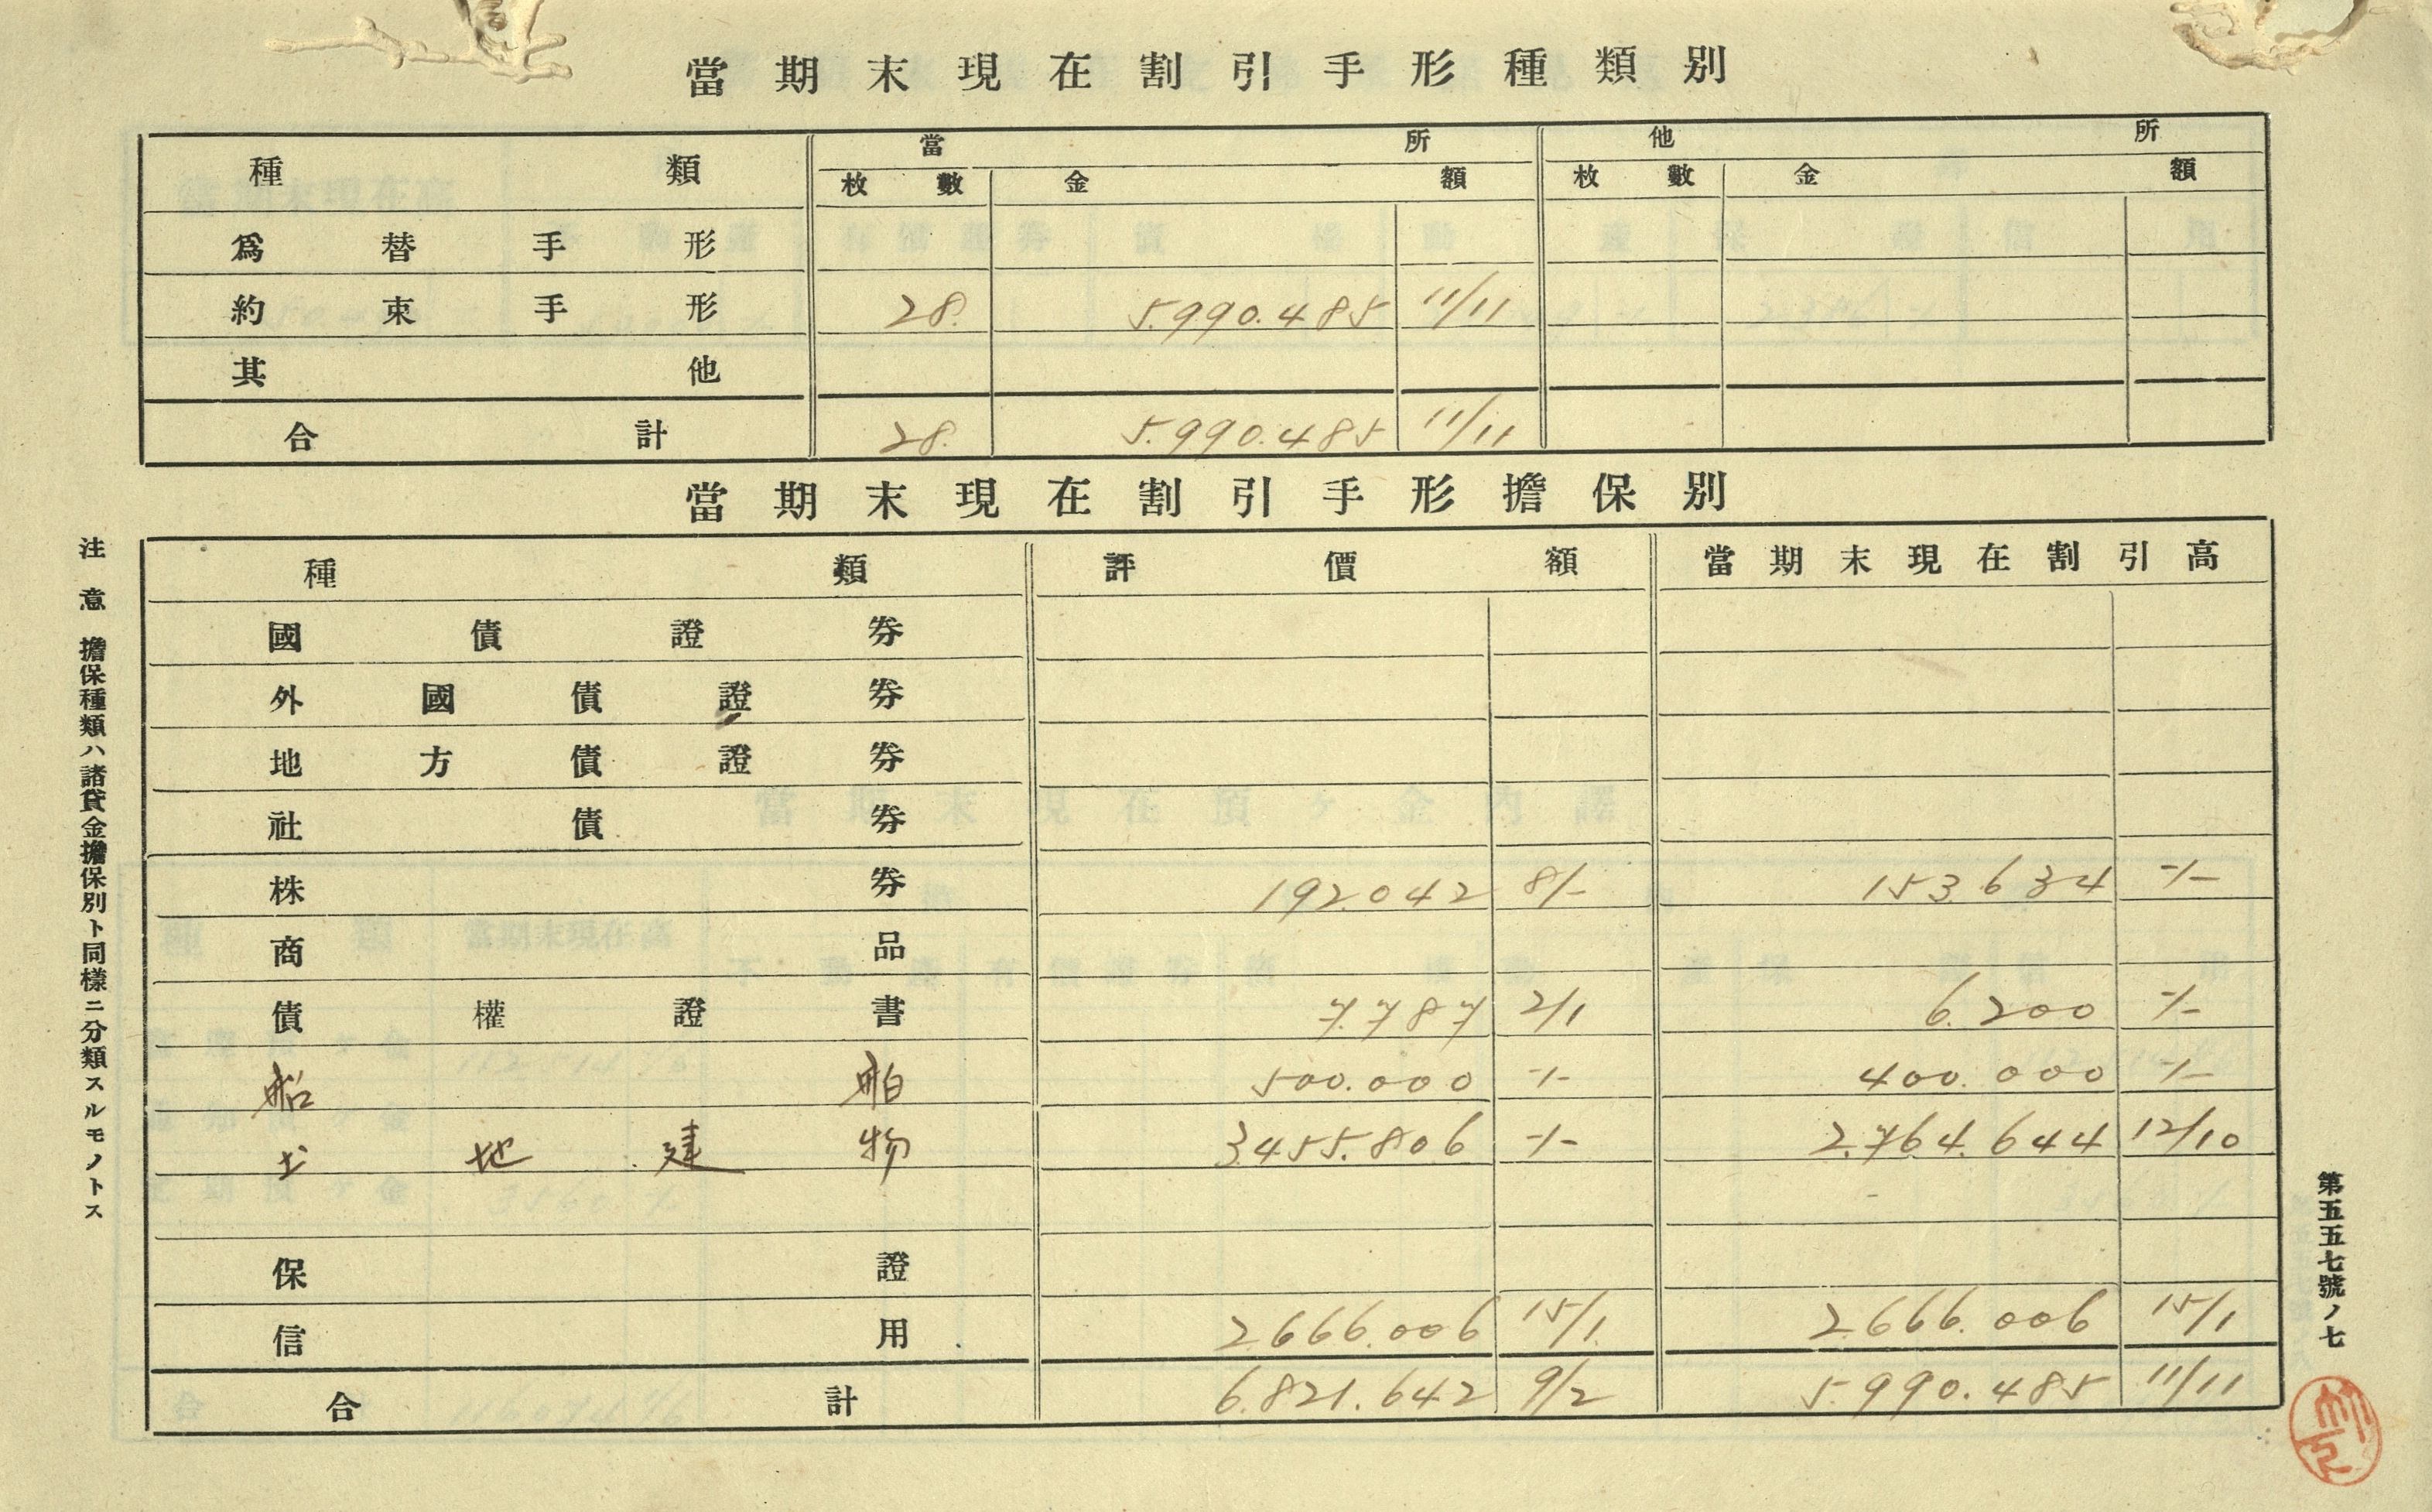 當期末現在割引手形種類別
種類 當所 他所
枚數 金額 枚數 金額
爲替手形
約束手形 28. 5.990.485 11/11
其他
合計 28. 5.990.485 11/11
當期末現在割引手形擔保別
種類 評價額 當期末現在割引高
國債證券
外國債證券
地方債證券
社債券
株券 192.042 8/- 153.634 -/-
商品
債權證書 7.787 2/1 6.200 -/-
船舶 500.000 -/- 400.000 -/-
土地建物 3.455.806 -/- 2.764.644 12/10
保證
信用 2.666.006 15/1 2.666.006 15/1
合計 6.821.642 9/2 5.990.485 11/11
注意 擔保種類ハ諸貸金擔保別ト同樣ニ分類スルモノトス
第五五七號ノ七